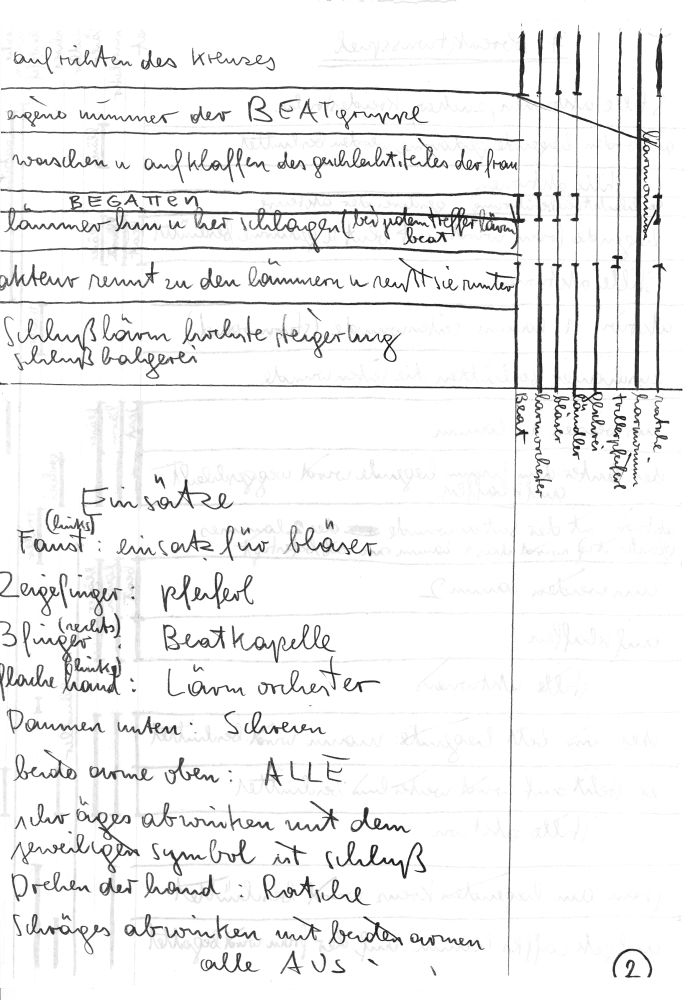 aufrichten des Kreuzes
eigene nummer der BEATgruppe
waschen u aufklaffen des geschlechtsteiles der frau
BEGATTEN
lämmer hin u her schlagen (bei jedem treffer lärm
beat)
akteur rennt zu den lämmern u reißt sie runter
Schlußlärm höchste steigerung
schlußbalgerei
Harmonium
Beat
lärmorchester
bläser
ländler
geschrei
trillerpfeiferl
harmonium
ratsche
Einsätze
(links)
Faust: einsatz für bläser
Zeigefinger: pfeiferl
(rechts)
3 finger: Beatkapelle
(links)
flache hand: Lärmorchester
Daumen unten: Schreien
beide arme oben: ALLE
schräges abwinken mit dem
jeweiligen symbol ist schluß
Drehen der hand: Ratsche
Schräges abwinken mit beiden armen
alle AUS
2